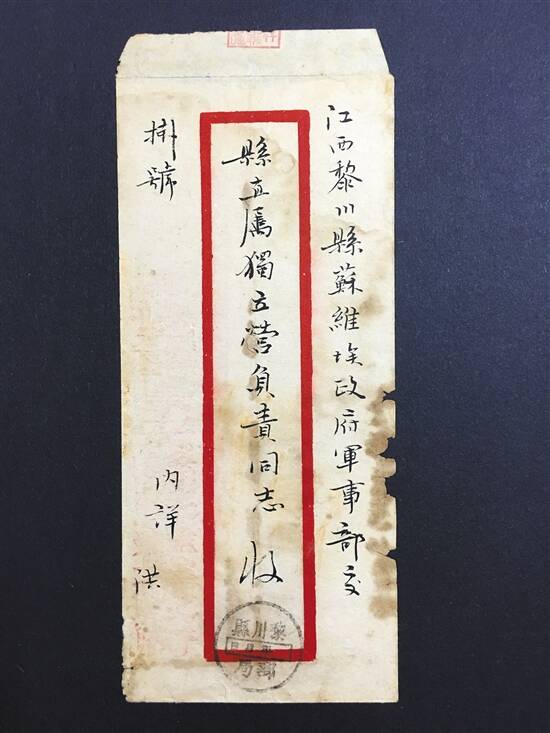 江西黎川縣蘇維埃政府軍事部交
縣直屬獨立營負責同志 收
掛號
內詳 洪
黎川縣
郵局